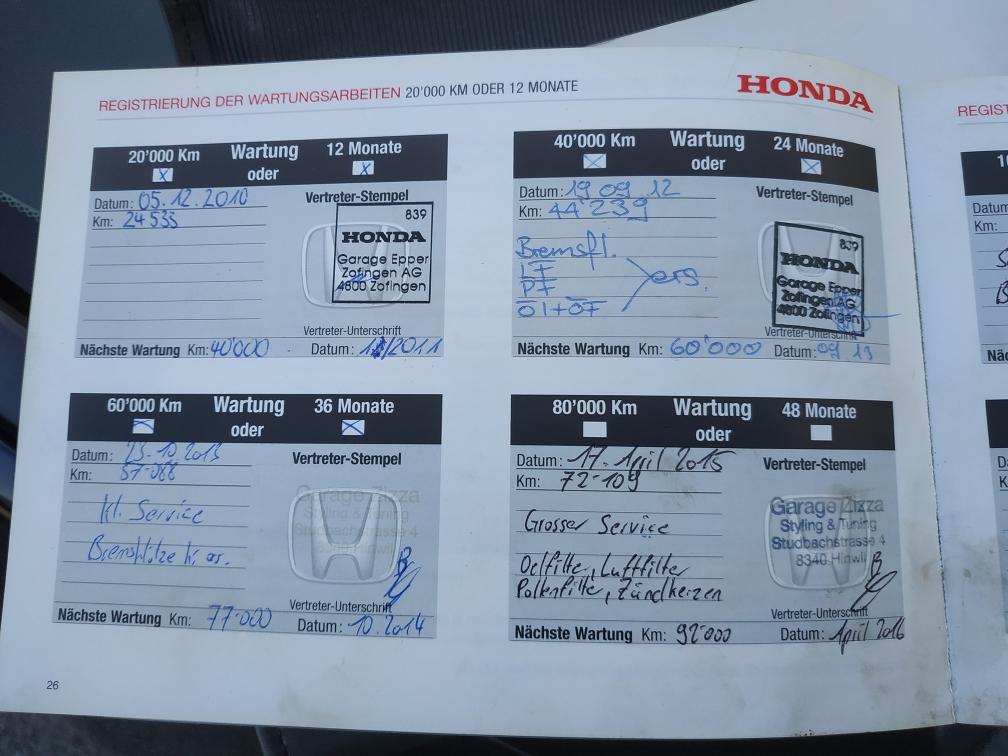 REGISTRIERUNG DER WARTUNGSARBEITEN 20'000 KM ODER 12 MONATE
HONDA
20'000 Km Wartung oder 12 Monate
Datum: 05.12.2010
Km: 24535
Vertreter-Stempel
839
HONDA
Garage Epper
Zofingen AG
4800 Zofingen
Vertreter-Unterschrift
Nächste Wartung Km: 40'000 Datum: /2011
40'000 Km Wartung oder 24 Monate
Datum: 19 09. 12
Km: 44'239
Vertreter-Stempel
Bremsfl.
LF
PF
Öl+ÖF
ers.
839
HONDA
Garage Epper
Zofingen AG
4800 Zofingen
Vertreter-Unterschrift
Nächste Wartung Km: 60'000 Datum: 09 13
60'000 Km Wartung oder 36 Monate
Datum: 23.10.2013
Km: 57'088
Vertreter-Stempel
kl. Service
Garage Zizza
Styling & Tuning
Studbachstrasse 4
8340 Hinwil
Vertreter-Unterschrift
Nächste Wartung Km: 77'000 Datum: 10.2014
80'000 Km Wartung oder 48 Monate
Datum: 17. April 2015
Km: 72'109
Vertreter-Stempel
Grosser Service
Oelfilter, Luftfilter
Pollenfilter, Zündkerzen
Garage Zizza
Styling & Tuning
Studbachstrasse 4
8340 Hinwil
Vertreter-Unterschrift
Nächste Wartung Km: 92'000 Datum: April 2016
26
REGIST
Datum
Km: